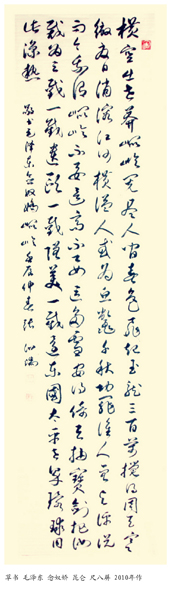 横空出世莽崐崘阅尽人间春色飞起玉龙三百万搅得周天寒
彻夏日消溶江河横溢人或为鱼鳖千秋功罪谁人曾与评说
而今我谓崐崘不要这高不要这多雪安得倚天抽宝剑把汝
裁为三截一截遗欧一截赠美一截还东国太平世界环球同
此凉热 敬书毛泽东念奴娇崐崘 仲春
草书 毛泽东 念奴娇 昆仑 尺八屏 2010年作